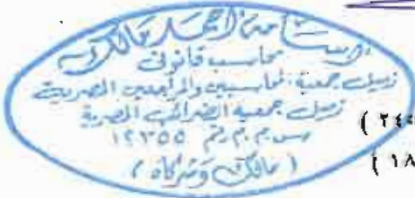 أسامة أحمد مالك
محاسب قانونى
زميل جمعية المحاسبين والمراجعين المصرية
زميل جمعية الضرائب المصرية
س.م.م رقم ١٢٣٥٥
( مالك وشركاه )